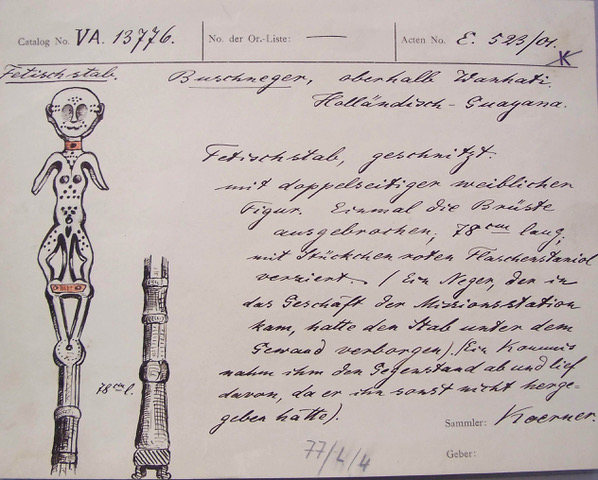 Catalog No. VA. 13776. No. der Or.-Liste: — Acten No. E. 523/01.
K
Fetischstab. Buschneger, oberhalb Wanhati.
Holländisch-Guayana.
Fetischstab, geschnitzt.
mit doppelseitiger weiblichen
Figur. Einmal die Brüste
ausgebrochen; 78 cm lang;
mit Stückchen roten Flaschenstaniol
verziert. (Ein Neger, der in
das Geschäft der Missionsstation
kam, hatte den Stab unter dem
Gewand verborgen). (Ein Kommis
nahm ihm den Gegenstand ab und lief
davon, da er ihn sonst nicht herge=
geben hätte).
78 cm l.
Sammler: Koerner.
Geber:
77/L/4